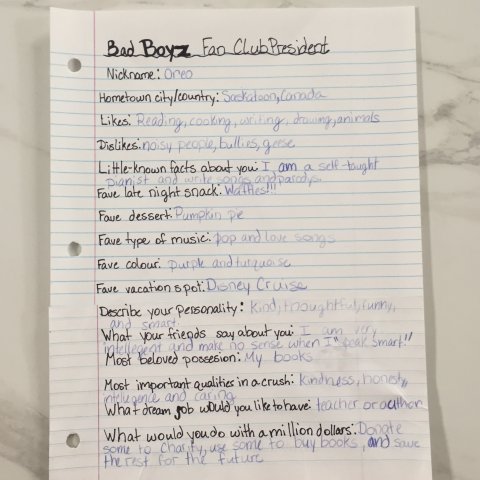 Bad Boyz Fan Club President
Nickname: Oreo
Hometown city/country: Saskatoon, Canada
Likes: Reading, cooking, writing, drawing, animals
Dislikes: noisy people, bullies, geese
Little-known facts about you: I am a self-taught
pianist and write songs and parodys.
Fave late night snack: Waffles!!!
Fave dessert: Pumpkin pie
Fave type of music: pop and love songs
Fave colour: purple and turquoise
Fave vacation spot: Disney Cruise
Describe your personality: Kind, thoughtful, funny,
and smart
What your friends say about you: I am very
intellegent and make no sense when I "speak smart"!!
Most beloved possesion: My books
Most important qualities in a crush: Kindness, honesty,
intelugence and caring
What dream job would you like to have: teacher or author
What would you do with a million dollars: Donate
some to charity, use some to buy books, and save
the rest for the future